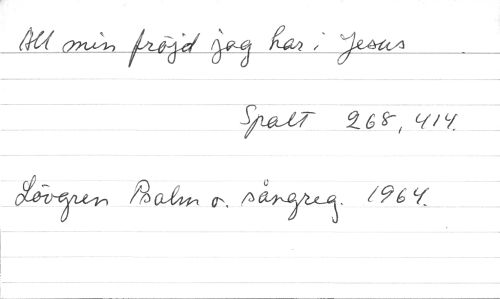 All min fröjd jag har i Jesus
Spalt 268, 414.
Lövgren Psalm o. sångreg. 1964.